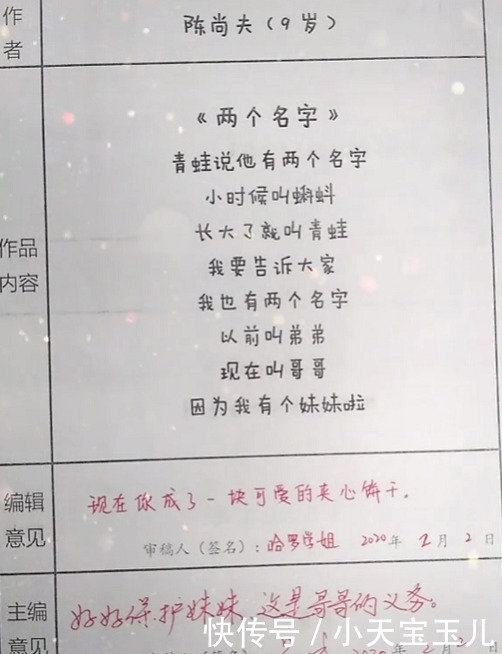 作者
陈尚夫（9岁）
《两个名字》
青蛙说他有两个名字
小时候叫蝌蚪
长大了就叫青蛙
作品内容
我要告诉大家
我也有两个名字
以前叫弟弟
现在叫哥哥
因为我有个妹妹啦
编辑意见
现在你成了一块可爱的夹心饼干。
审稿人（签名）：哈罗学姐 2020年2月2日
主编意见
好好保护妹妹，这是哥哥的义务。
2月2日
快传号／小天宝玉儿